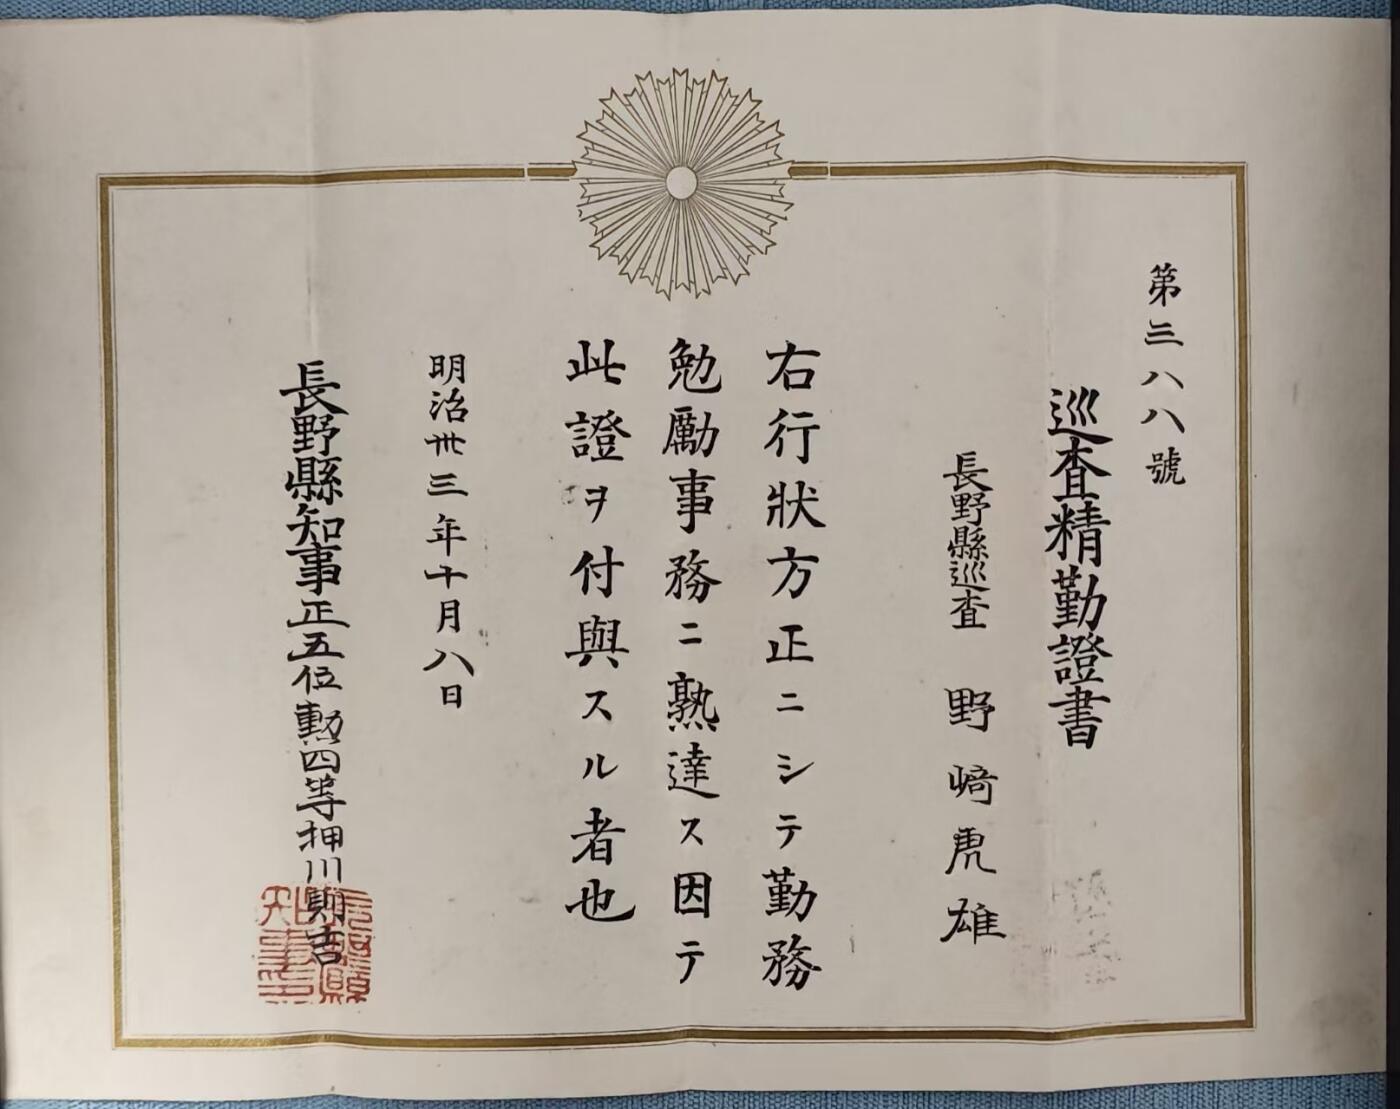 第三八八號
巡査精勤證書
長野縣巡査 野﨑虎雄
右行狀方正ニシテ勤務
勉勵事務ニ熟達ス因テ
此證ヲ付與スル者也
明治卅三年十月八日
長野縣知事正五位勳四等押川則吉
長野縣知事印